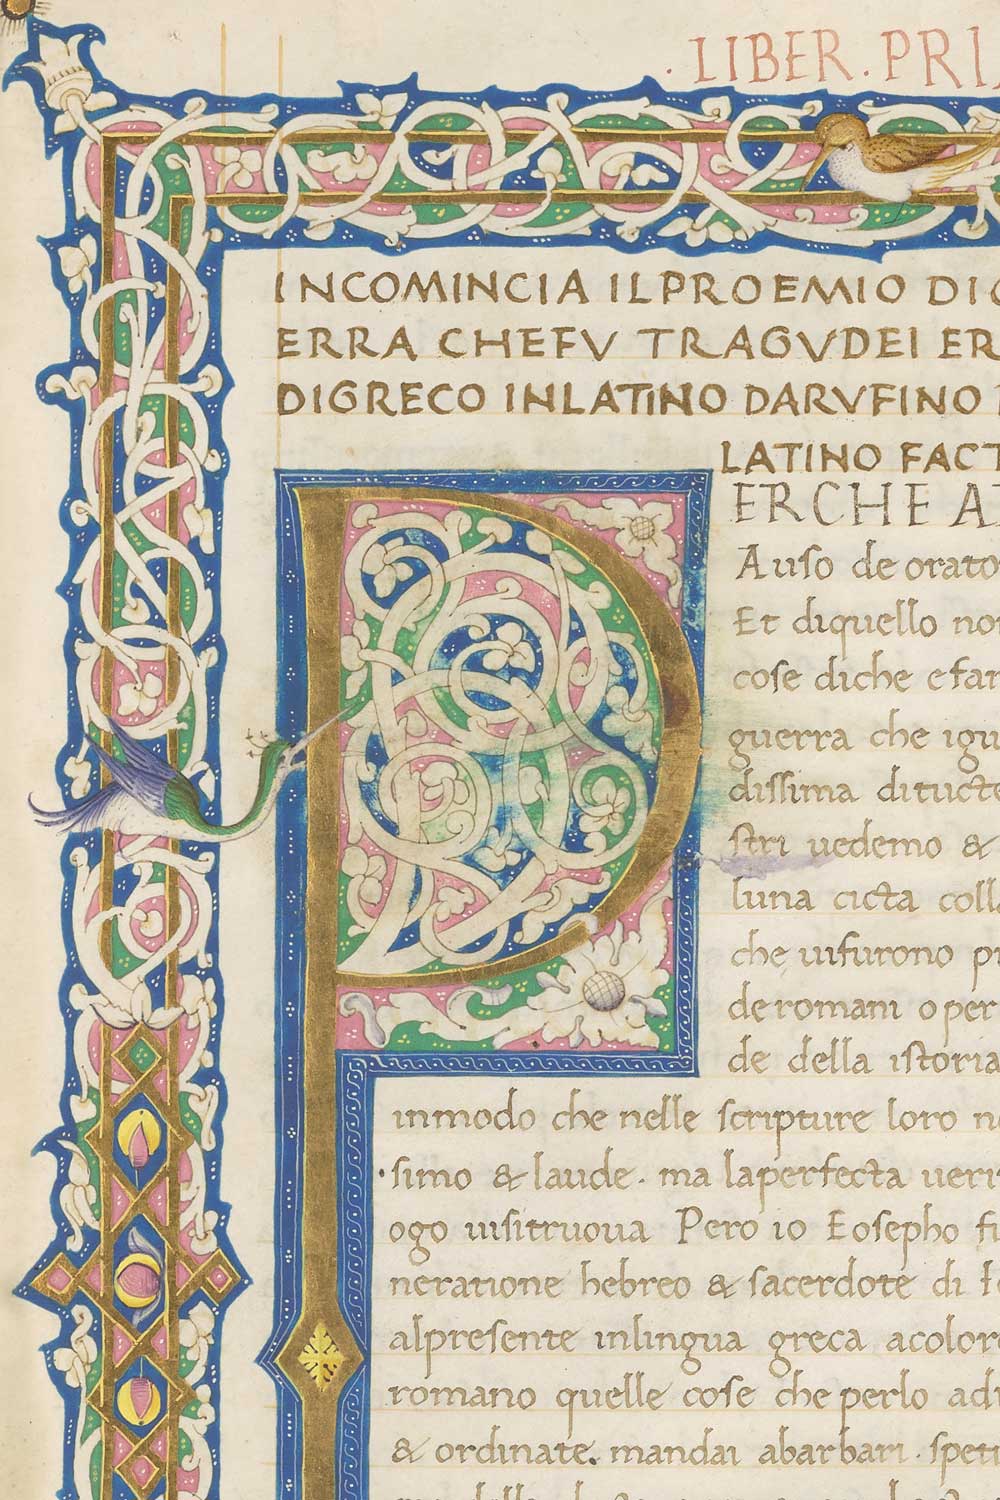 · LIBER · PRI
INCOMINCIA IL PROEMIO DI
ERRA CHE FV TRAGVDEI ER
DIGRECO INLATINO DARVFINO
LATINO FACT
P
ERCHE A
Auſo de orato
Et diquello no
coſe di che efar
guerra che igu
diſſima ditucte
ſtri uedemo &
luna cicta coll
che uifurono p
de romani oper
de della iſtoria
inmodo che nelle ſcripture loro n
·ſimo & laude · ma laperfecta ueri
ogo uiſitruoua Pero io Eoſepho fi
neratione hebreo & ſacerdote di
alpreſente inlingua greca acolor
romano quelle coſe che perlo ad
& ordinate. mandai abarbari · ſpet